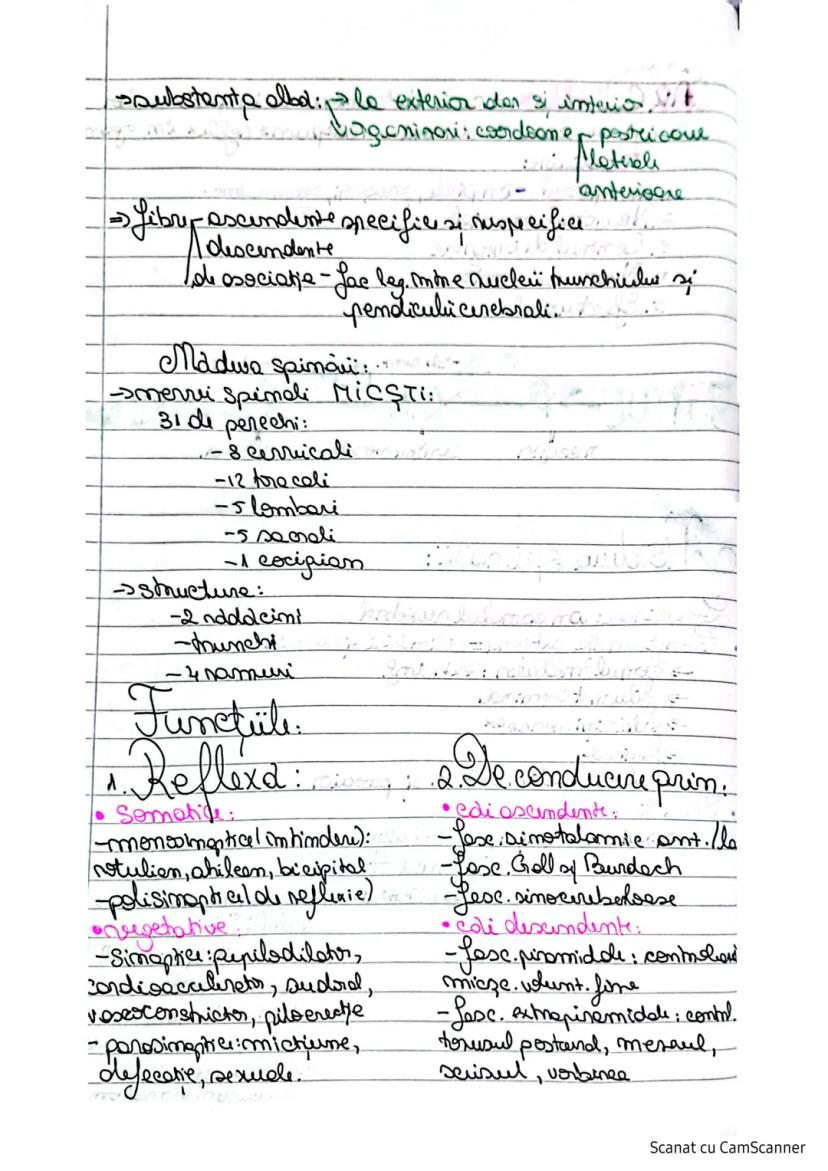 →substanța albă: → la exterior dar și interior.
organizări: cordoane posterioare
laterale
- anterioare
⇒ fibre ascendente specifice și nespecifice
descendente
de asociație - fac leg. între nucleii trunchiului și
penduculii cerebrali.
Măduva spinării:
→nervi spinali MICȘTI:
31 de perechi:
- 8 cervicali
-12 toracali
-5 lombari
-5 sacrali
-1 cocigian
→structura:
-2 rădăcini
-trunchi
-4 ramuri
Funcțiile:
1. Reflexă: 2. De conducere prin:
• Somatice: • căi ascendente:
-monosinaptice(întindere): -fasc. sinotalamic ant./la
rotulian, ahilean, bicipital -fasc. Goll și Burdach
-polisinaptice(de reflexie) -fasc. sinocerebeloase
•vegetative: • căi descendente:
-Simpatice: pupilodilator, -fasc. piramidale: controlează
cardioaccelerator, sudoral, mișc. volunt. fine
vasoconstrictor, piloerecție -fasc. extrapiramidale: contrl.
- parasimpatice: micțiune, tonusul postural, mersul,
defecație, sexuale. scrisul, vorbirea
Scanat cu CamScanner